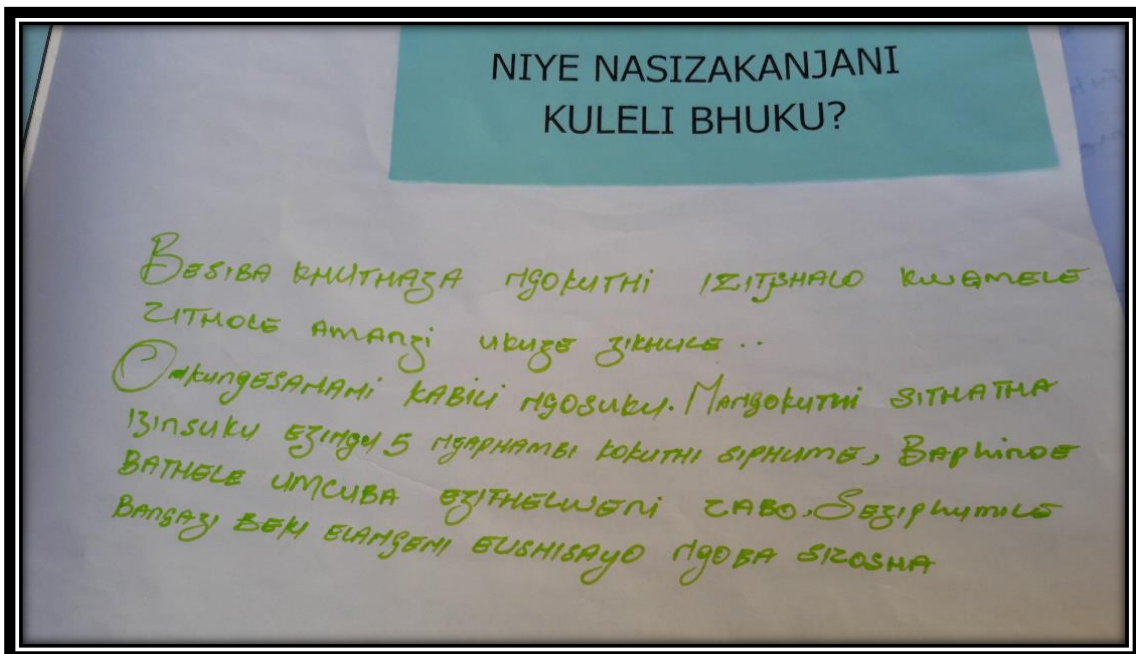 NIYE NASIZAKANJANI
KULELI BHUKU?
BESIBA KHUTHAZA NGOKUTHI IZITJSHALO KWAMELE
ZITHOLE AMANZI UKUZE ZIKHULE ..
OKUNGESANANI KABILI NGOSUKU. MANGOKUTHI SITHATHA
IZINSUKU EZINGU 5 NGAPHAMBI KOKUTHI SIPHUME, BAPHINDE
BATHELE UMCUBA EZITHELWENI ZABO. SEZIPHUMILE
BANGAZI BEKI ELANGENI ELISHISAYO NGOBA SIZOSHA